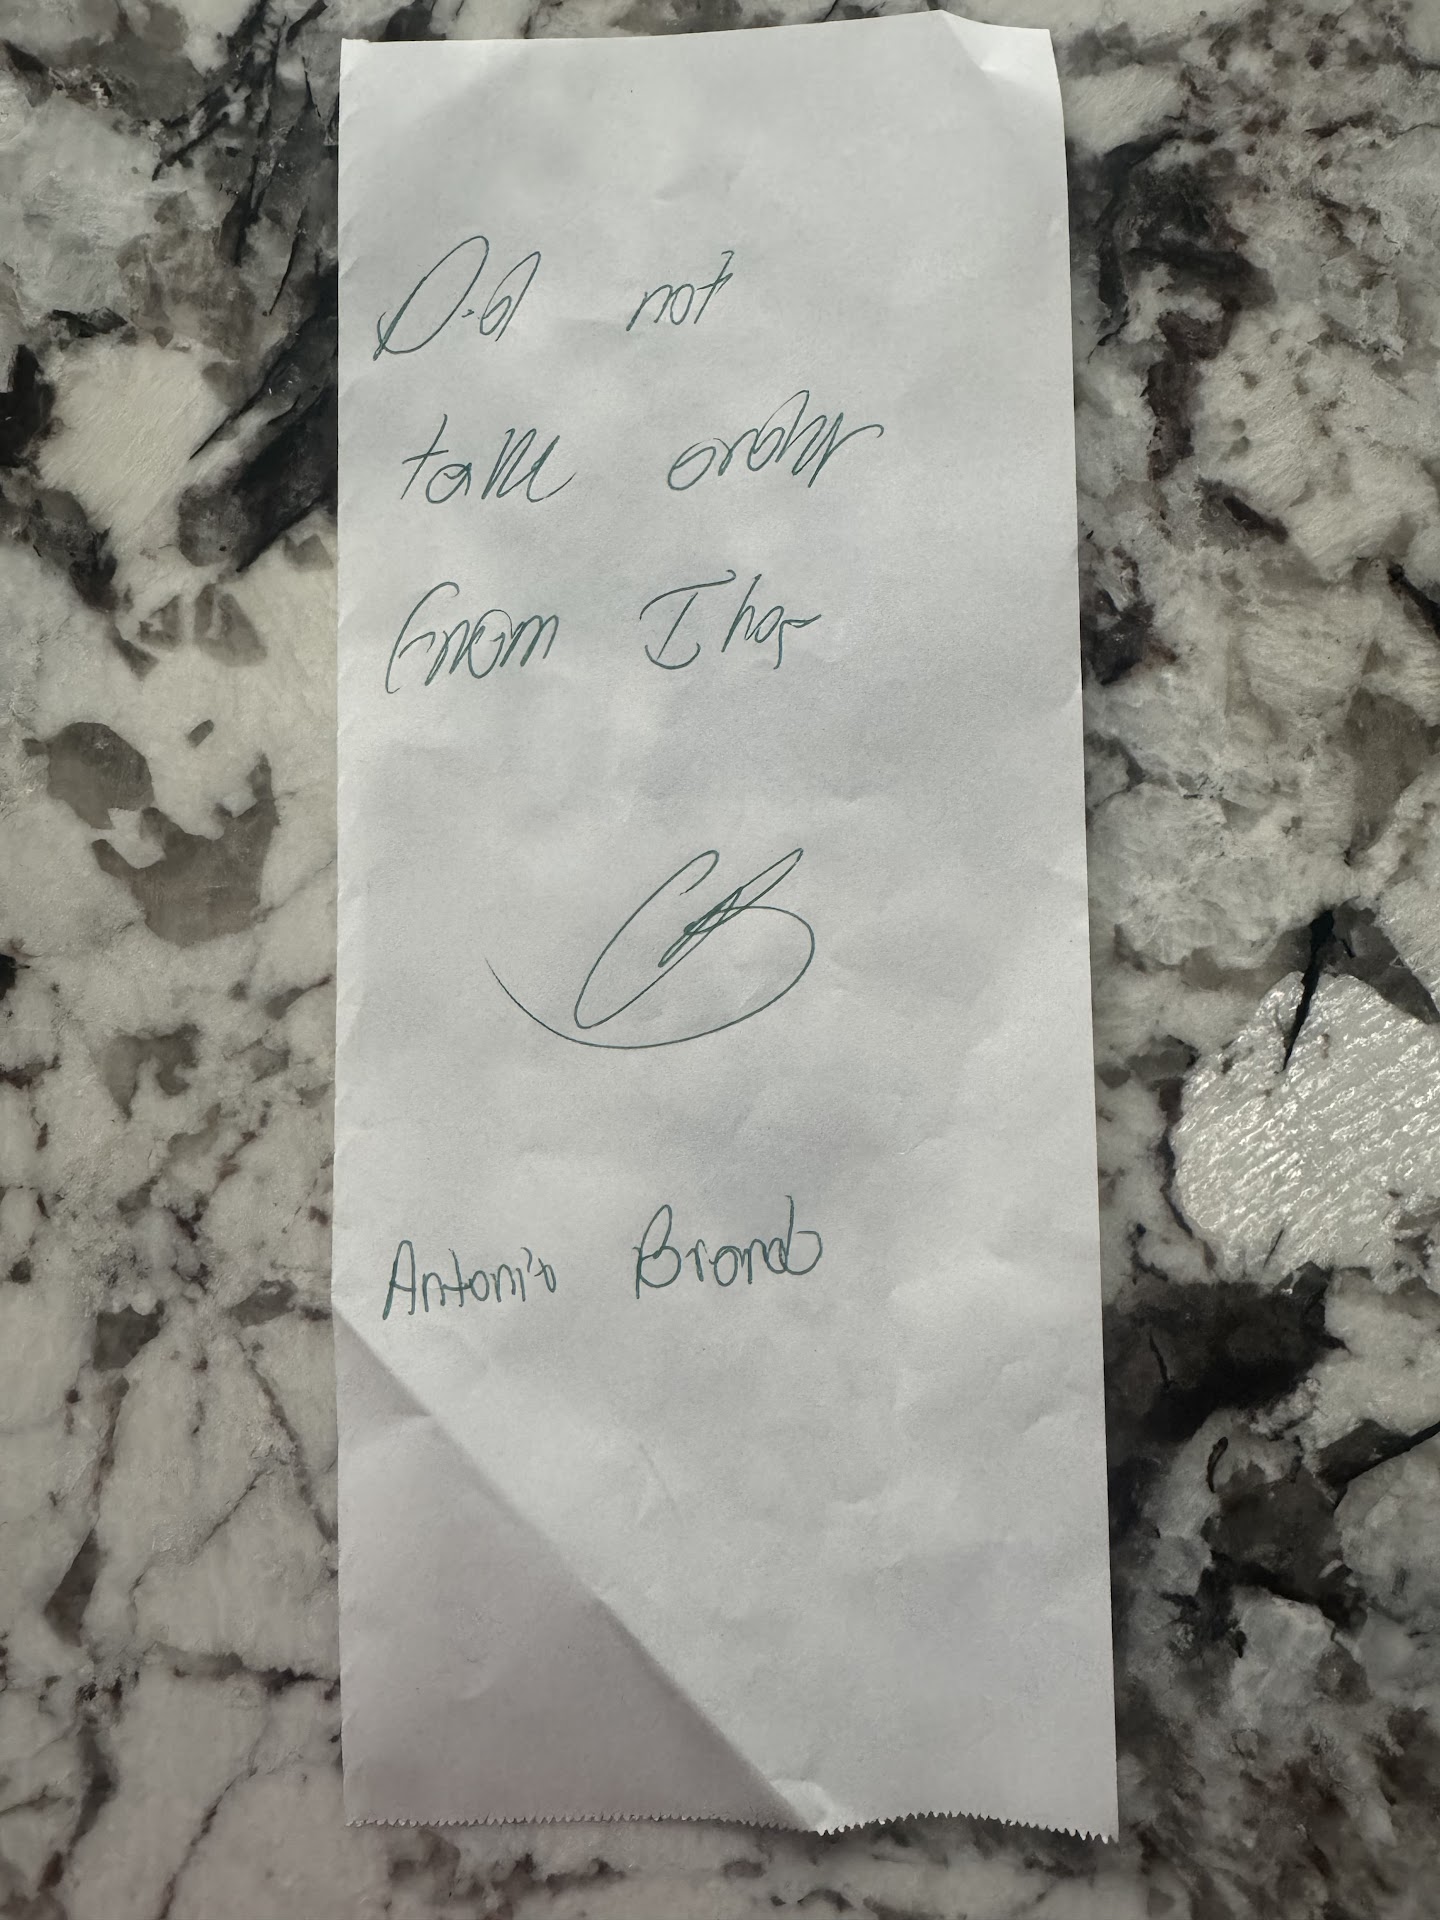 Did not
take order
from Ihor
Antonio Brando